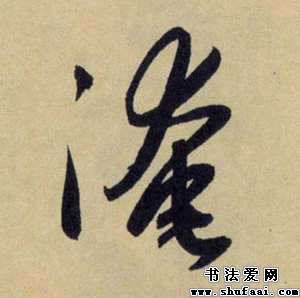 淹
书法爱网
www.shufaai.com